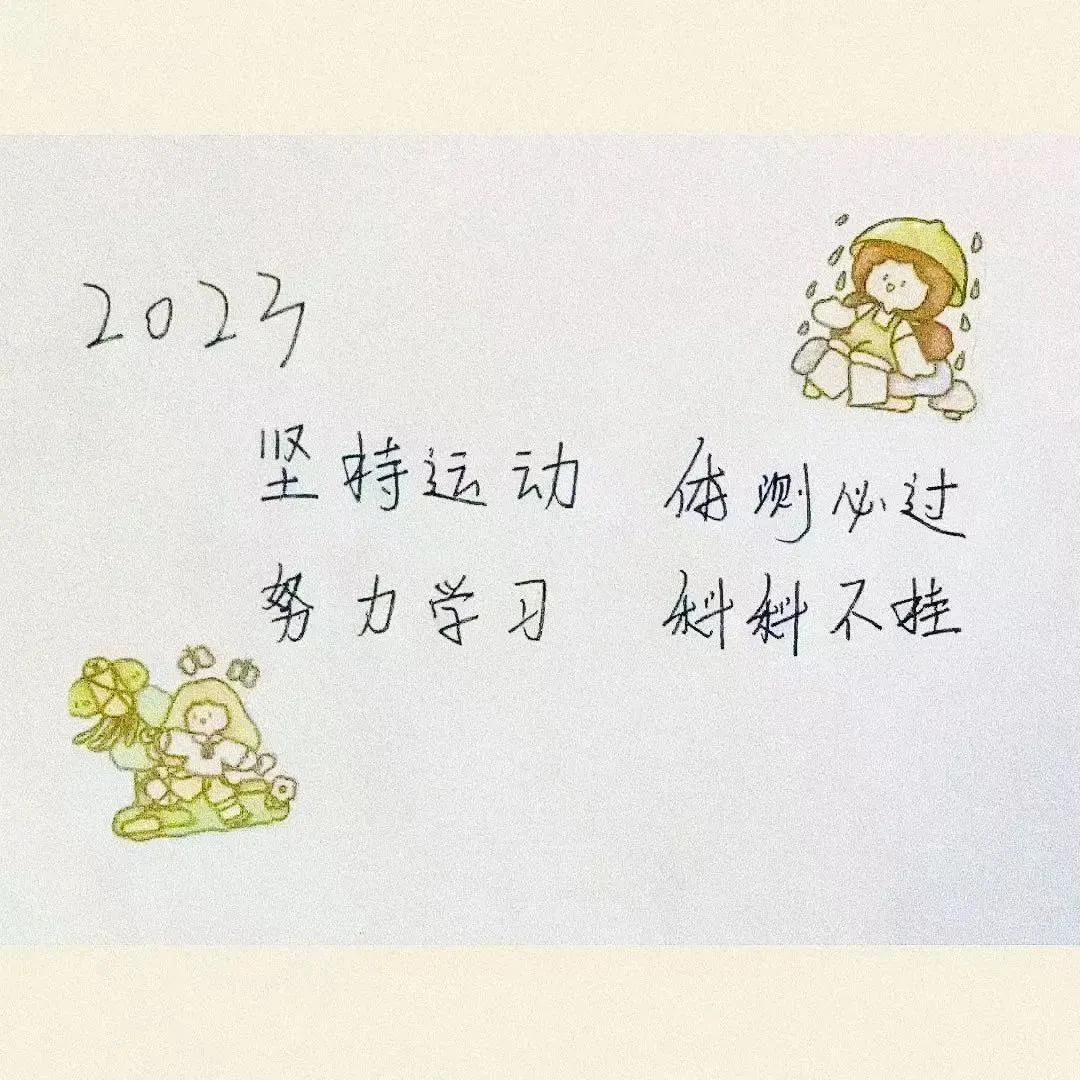 2023
坚持运动 体测必过
努力学习 科科不挂